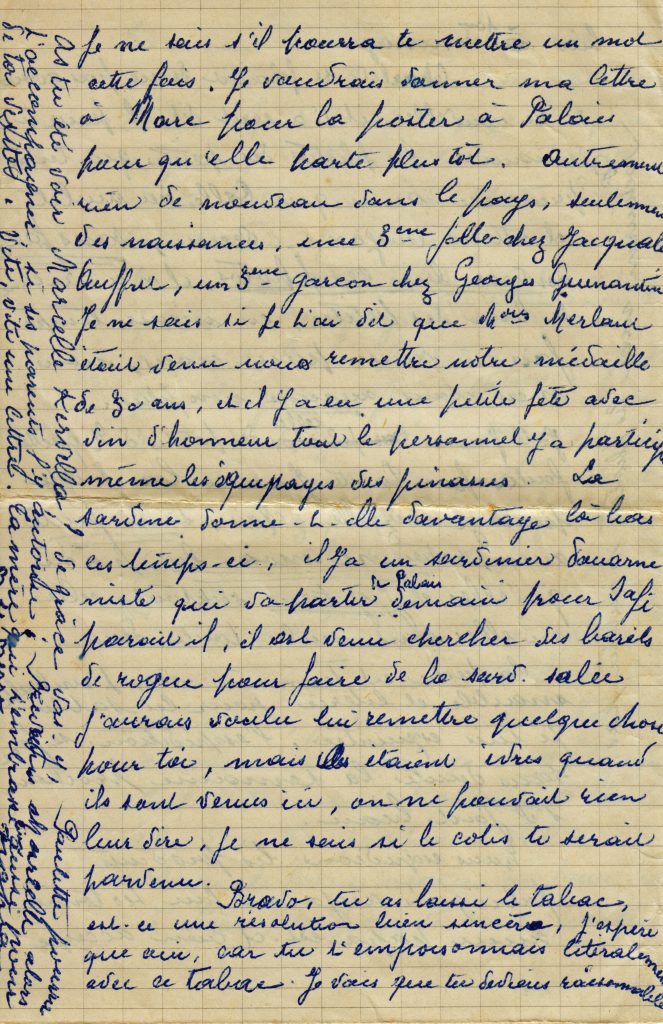 Je ne sais s'il pourra te mettre un mot
cette fois. Je voudrais donner ma lettre
à Marc pour la poster à Palais
pour qu'elle parte plus tôt. Autrement
rien de nouveau dans le pays, seulement
des naissances, une 3ème fille chez Jacquale
Auffret, un 3ème garcon chez Georges
Je ne sais si je t'ai dit que
était venu nous remettre notre médaille
de 30 ans, et il y a eu une petite fête avec
vin d'honneur tout le personnel y a participé
même les équipages des pinasses. La
sardine donne-t-elle davantage là bas
ces temps-ci, il y a un sardinier douarne
niste qui va partir de Palais demain pour Safi
parait il, il est venu chercher des barils
de rogue pour faire de la sard. salée
j'aurais voulu lui remettre quelque chose
pour toi, mais ils étaient ivres quand
ils sont venus ici, on ne pouvait rien
leur dire, je ne sais si le colis te serait
parvenu.
Bravo, tu as laissé le tabac,
est-ce une résolution bien sincère, j'espère
que oui, car tu t'empoisonnais litéralement
avec ce tabac. Je vois que tu deviens raisonnable
As tu été voir Marcelle de grâce vas-y, Paulette pourra
l'accompagner si ses parents l'y autorise. Marcelle alors
Vite, vite une lettre. Ta mère qui t'embrasse